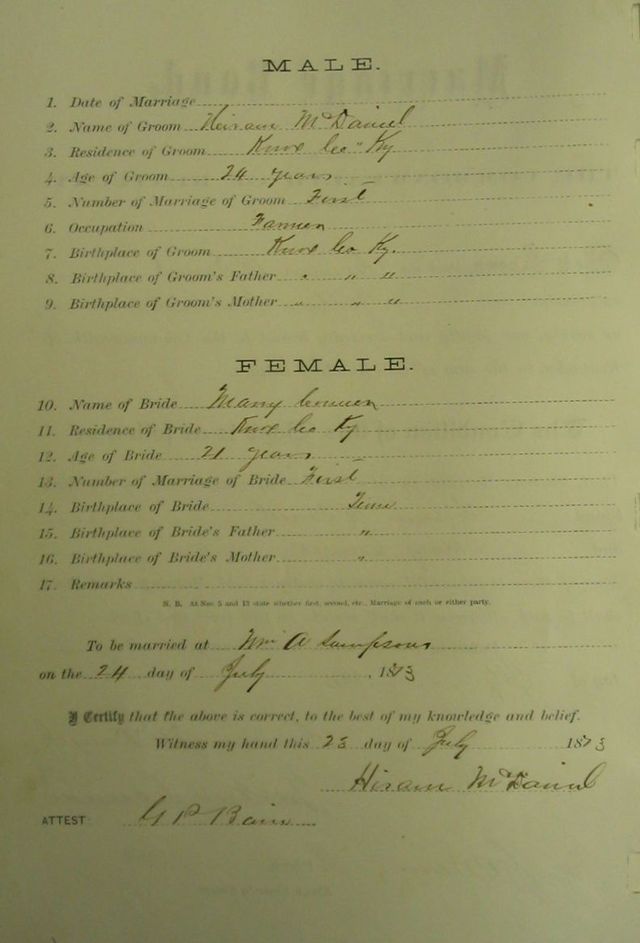 MALE.
1. Date of Marriage
2. Name of Groom Hiram McDaniel
3. Residence of Groom Knox Co Ky
4. Age of Groom 24 years
5. Number of Marriage of Groom First
6. Occupation Farmer
7. Birthplace of Groom Knox Co Ky.
8. Birthplace of Groom's Father " " "
9. Birthplace of Groom's Mother " " "
FEMALE.
10. Name of Bride
11. Residence of Bride Knox Co Ky
12. Age of Bride 21 years
13. Number of Marriage of Bride First
14. Birthplace of Bride Tenn
15. Birthplace of Bride's Father "
16. Birthplace of Bride's Mother "
17. Remarks
N. B. At Nos. 5 and 13 state whether first, second, etc., Marriage of each or either party.
To be married at Wm A Sampsons
on the 24 day of July, 1873
I Certify that the above is correct, to the best of my knowledge and belief.
Witness my hand this 23 day of July 1873
Hiram McDaniel
ATTEST: Bain